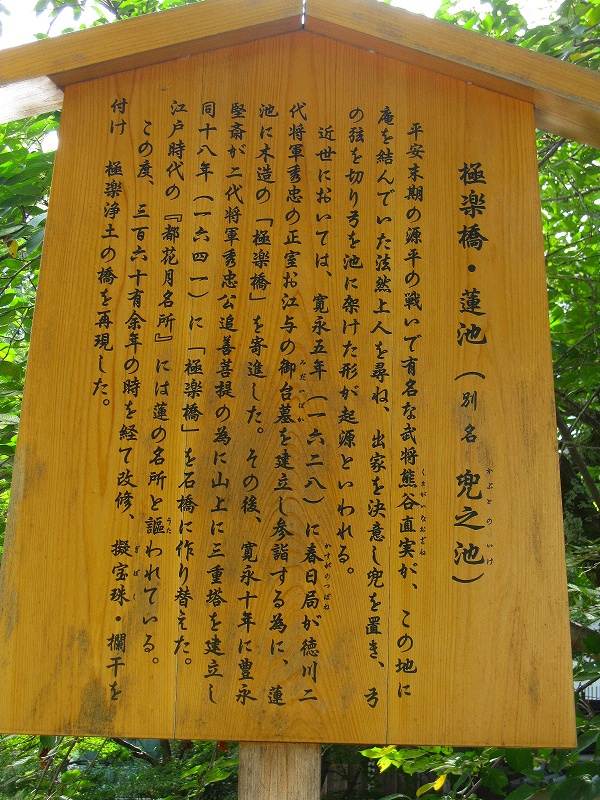 極楽橋・蓮池(別名 兜之池)
かぶとのいけ
平安末期の源平の戦いで有名な武将熊谷直実が、この地に
くまがいなおざね
庵を結んでいた法然上人を尋ね、出家を決意し兜を置き、弓
の弦を切り弓を池に架けた形が起源といわれる。
近世においては、寛永五年(一六二八)に春日局が徳川二
かすがのつぼね
代将軍秀忠の正室お江与の御台墓を建立し参詣する為に、蓮
みだいばか
池に木造の「極楽橋」を寄進した。その後、寛永十年に豊永
堅斎が二代将軍秀忠公追善菩提の為に山上に三重塔を建立し
同十八年(一六四一)に「極楽橋」を石橋に作り替えた。
江戸時代の『都花月名所』には蓮の名所と謳われている。
うた
この度、三百六十有余年の時を経て改修、擬宝珠・欄干を
ぎぼく
付け 極楽浄土の橋を再現した。